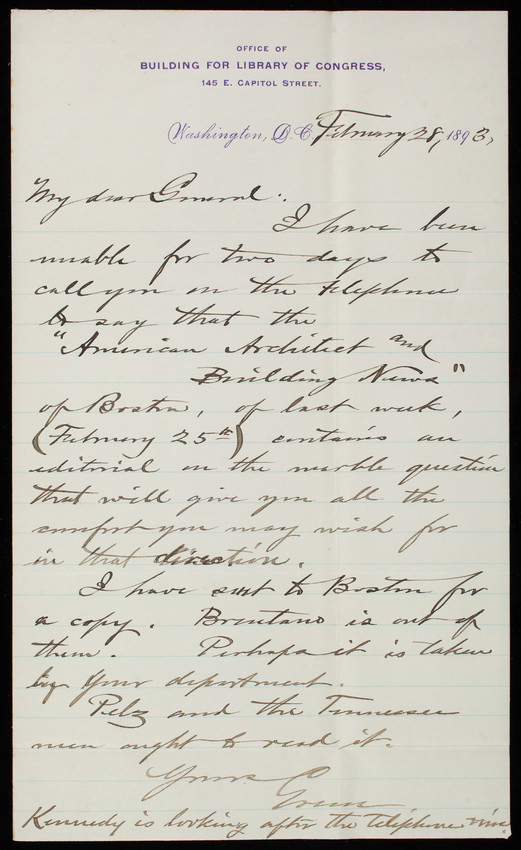 OFFICE OF
BUILDING FOR LIBRARY OF CONGRESS,
145 E. CAPITOL STREET.
Washington, D.C. February 28, 1893,
My dear General:
I have been
unable for two days to
call you on the telephone
to say that the
"American Architect and
Building News"
of Boston, of last week,
(February 25th) contains an
editorial on the marble question
that will give you all the
comfort you may wish for
in that direction.
I have sent to Boston for
a copy. Brentano is out of
them. Perhaps it is taken
by your department.
Pelz and the Tennessee
men ought to read it.
Yours
Green
Kennedy is looking after the telephone wire